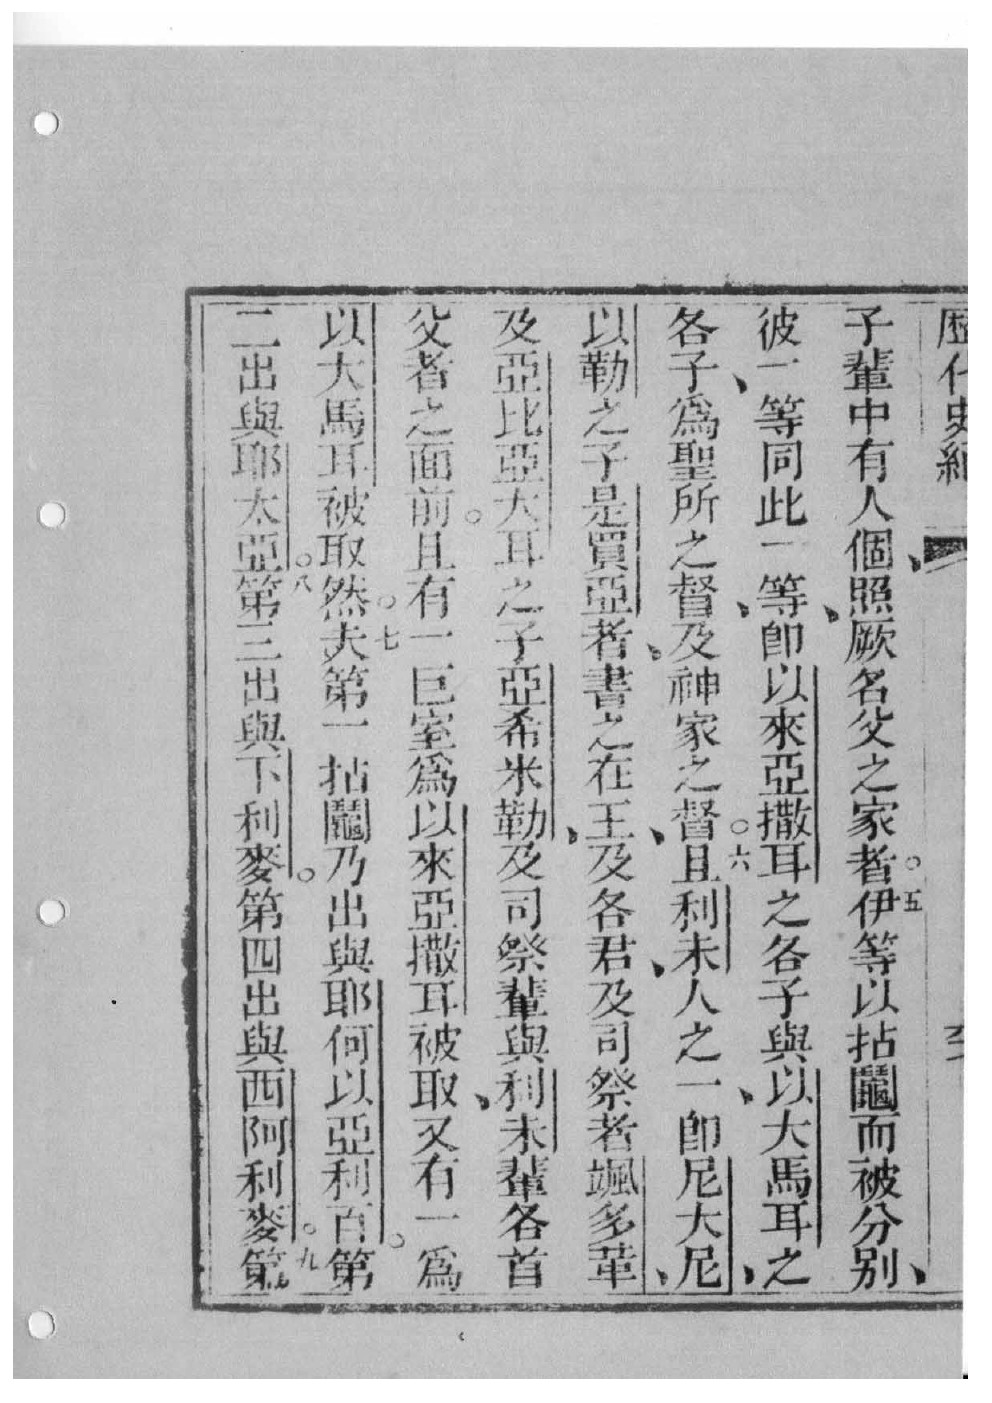 歷代史紀
子輩中有人個、照厥名父之家者○五伊等以拈鬮而被分別、
彼一等同此一等、即以來亞撒耳之各子與以大馬耳之
各子、爲聖所之督、及神家之督○六且利未人之一、即尼大尼、
以勒之子是買亞者、書之在王、及各君、及司祭者颯多革、
及亞比亞大耳之子亞希米勒、及司祭輩與利未輩各首
父者之面前○且有一巨室爲以來亞撒耳被取、又有一爲
以大馬耳被取○七然夫第一拈鬮乃出與耶何以亞利百○第
二出與耶太亞○八第三出與下利麥○第四出與西阿利麥○九第